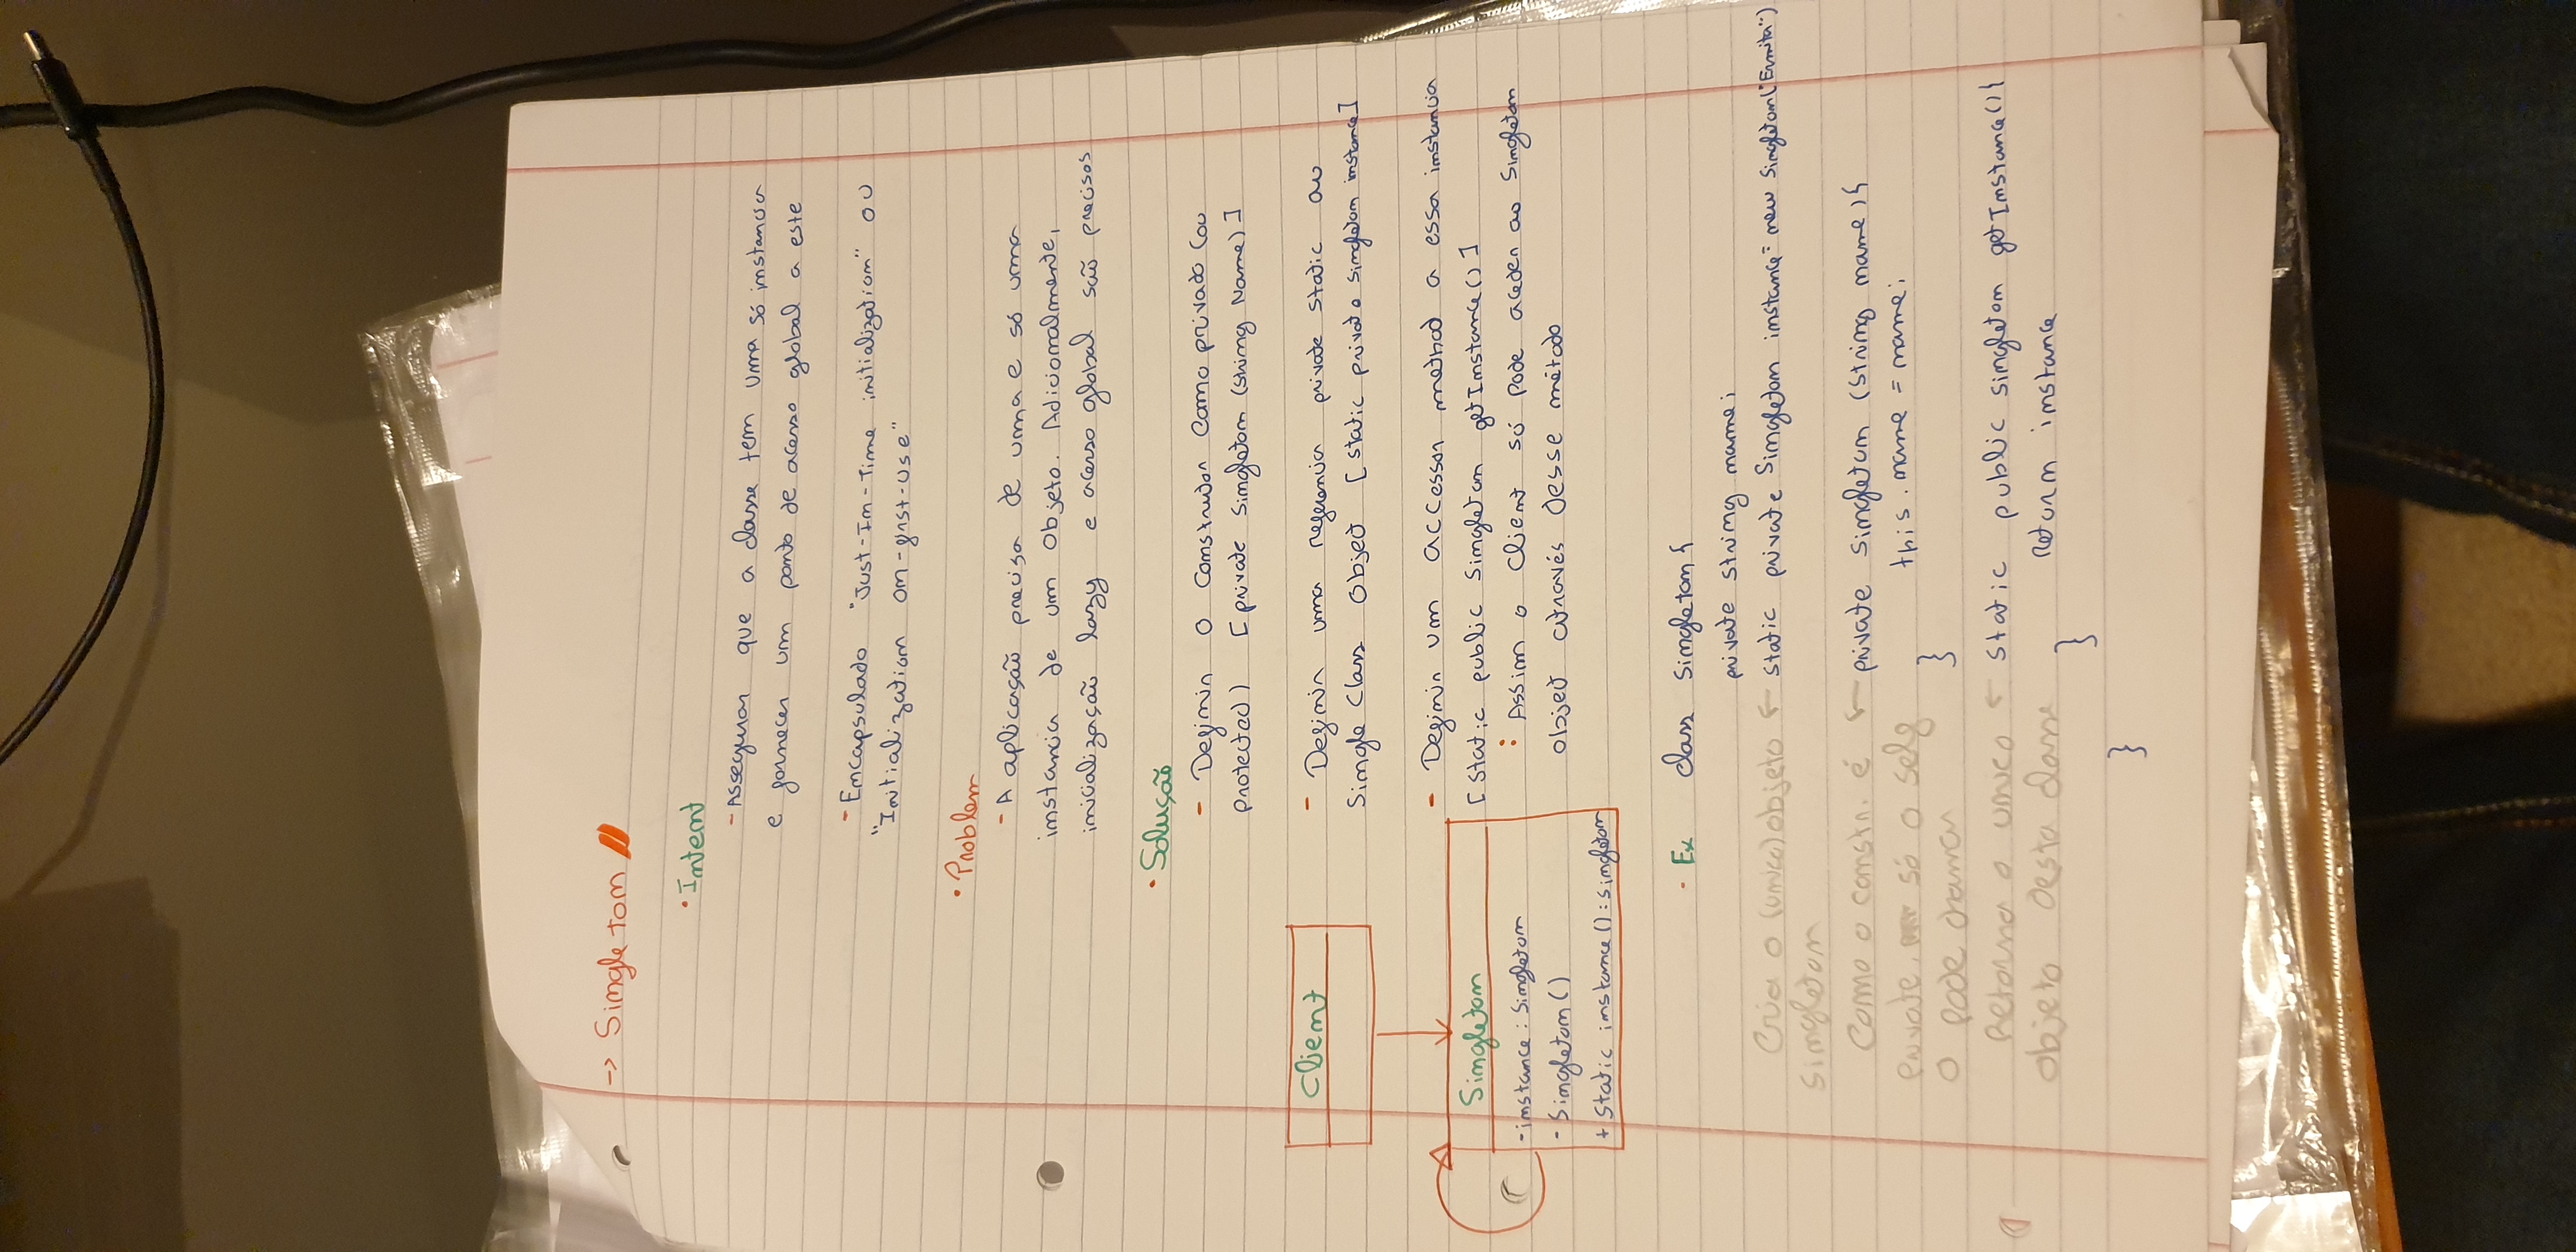 -> Singleton
• Intent
- Assegurar que a classe tem uma só instancia
e fornecer um ponto de acesso global a este
- Encapsulado "Just-In-Time initialization" ou
"Initialization on-first-use"
• Problem
- A aplicação precisa de uma e só uma
instancia de um objeto. Adicionalmente,
inicialização lazy e acesso global são precisos
• Solução
- Definir o construtor como privado (ou
protected) [private Singleton (String Name)]
Client
- Definir uma referencia private static ao
Single Class Object [static private Singleton instance]
- Definir um accessor method a essa instancia
[Static public Singleton getInstance()]
: Assim o Client só pode aceder ao Singleton
object através desse método
Singleton
- instance : Singleton
- Singleton()
+ Static instance() : Singleton
• Ex class Singleton {
private string name;
Cria o (unico) objeto <- static private Singleton instance = new Singleton("Ermita")
singleton
Como o constr. é <- private Singleton (String name) {
private, só o self this.name = name;
o pode chamar }
Retorna o unico <- static public singleton getInstance() {
objeto desta classe return instance
}
}